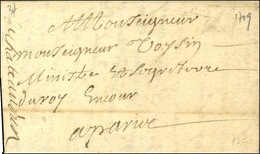 A Monseigneur
Monseigneur Voysin
Ministre & Segretere
du roy En cour
a paris
1709